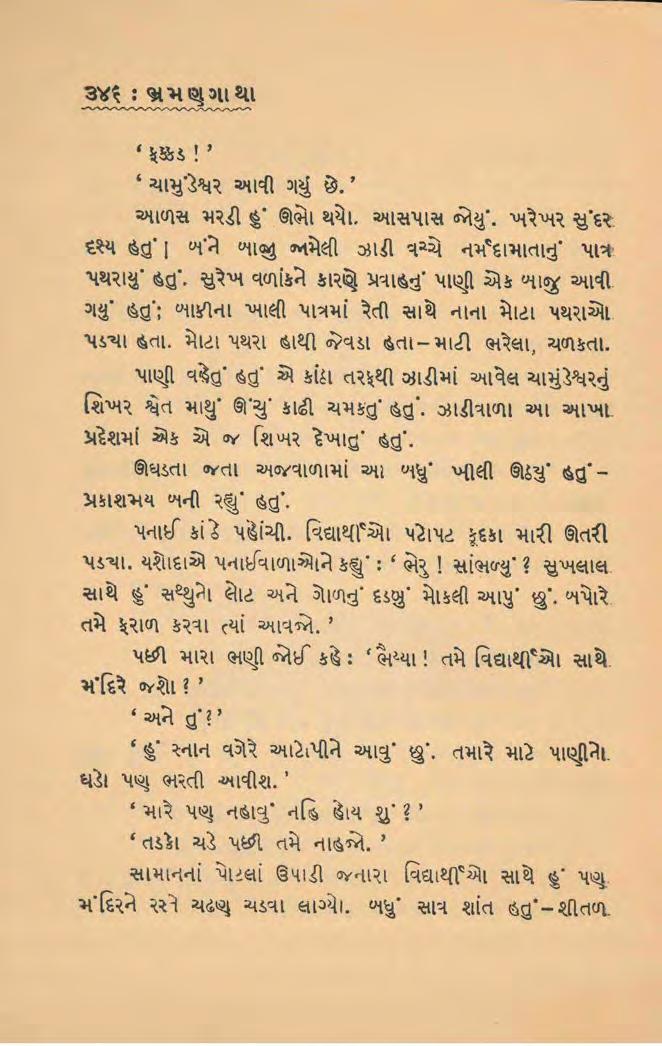 ૩૪૬ : ભ્રમણગાથા
‘ ફક્કડ ! ’
‘ ચામુંડેશ્વર આવી ગયું છે. ’
આળસ મરડી હું ઊભો થયો. આસપાસ જોયું. ખરેખર સુંદર
દૃશ્ય હતું ! બંને બાજુ જામેલી ઝાડી વચ્ચે નર્મદામાતાનું પાત્ર
પથરાયું હતું. સુરેખ વળાંકને કારણે પ્રવાહનું પાણી એક બાજુ આવી
ગયું હતું; બાકીના ખાલી પાત્રમાં રેતી સાથે નાના મોટા પથરાઓ
પડ્યા હતા. મોટા પથરા હાથી જેવડા હતા – માટી ભરેલા, ચળકતા.
પાણી વહેતું હતું એ કાંઠા તરફથી ઝાડીમાં આવેલ ચામુંડેશ્વરનું
શિખર શ્વેત માથું ઊંચું કાઢી ચમકતું હતું. ઝાડીવાળા આ આખા
પ્રદેશમાં એક એ જ શિખર દેખાતું હતું.
ઊઘડતા જતા અજવાળામાં આ બધું ખીલી ઊઠ્યું હતું –
પ્રકાશમય બની રહ્યું હતું.
પનાઈ કાંઠે પહોંચી. વિદ્યાર્થીઓ પટોપટ કૂદકા મારી ઊતરી
પડ્યા. યશોદાએ પનાઈવાળાઓને કહ્યું : ‘ ભેરુ ! સાંભળ્યું ? સુખલાલ
સાથે હું સથ્થુનો લોટ અને ગોળનું દડબું મોકલી આપું છું. બપોરે
તમે ફરાળ કરવા ત્યાં આવજો. ’
પછી મારા ભણી જોઈ કહે : ‘ ભૈય્યા ! તમે વિદ્યાર્થીઓ સાથે
મંદિરે જશો ? ’
‘ અને તું ? ’
‘ હું સ્નાન વગેરે આટોપીને આવું છું. તમારે માટે પાણીનો
ઘડો પણ ભરતી આવીશ. ’
‘ મારે પણ નહાવું નહિ હોય શું ? ’
‘ તડકો ચડે પછી તમે નાહજો. ’
સામાનનાં પોટલાં ઉપાડી જનારા વિદ્યાર્થીઓ સાથે હું પણ
મંદિરને રસ્તે ચઢણ ચડવા લાગ્યો. બધું સાવ શાંત હતું – શીતળ